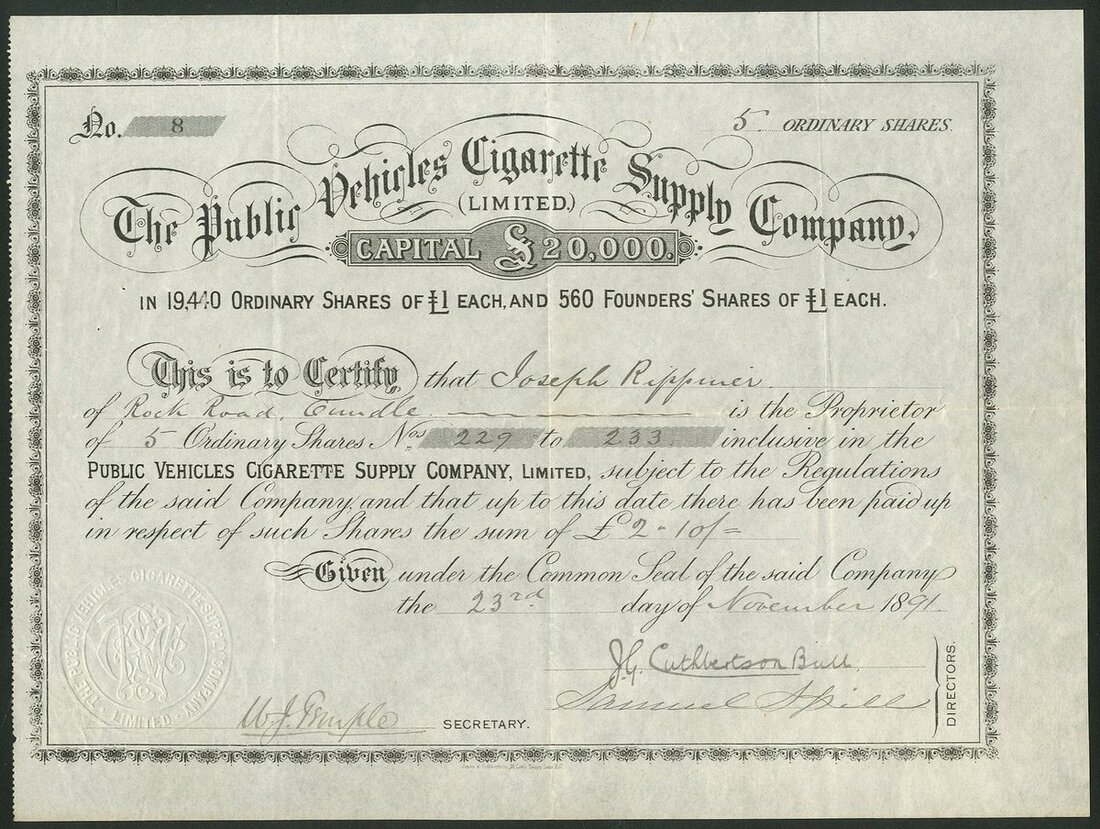 No. 8
5 ORDINARY SHARES.
The Public Vehicles Cigarette Supply Company,
(LIMITED.)
CAPITAL £20,000.
IN 19,440 ORDINARY SHARES OF £1 EACH, AND 560 FOUNDERS' SHARES OF £1 EACH.
This is to Certify that Joseph Rippiner
of Rock Road, Oundle is the Proprietor
of 5 Ordinary Shares Nos 229 to 233 inclusive in the
PUBLIC VEHICLES CIGARETTE SUPPLY COMPANY, LIMITED, subject to the Regulations
of the said Company and that up to this date there has been paid up
in respect of such Shares the sum of £2-10/-
Given under the Common Seal of the said Company
the 23rd day of November 1891.
THE PUBLIC VEHICLES CIGARETTE SUPPLY COMPANY LIMITED
J.G. Cuthbertson Bull
Samuel Spill
DIRECTORS.
SECRETARY.